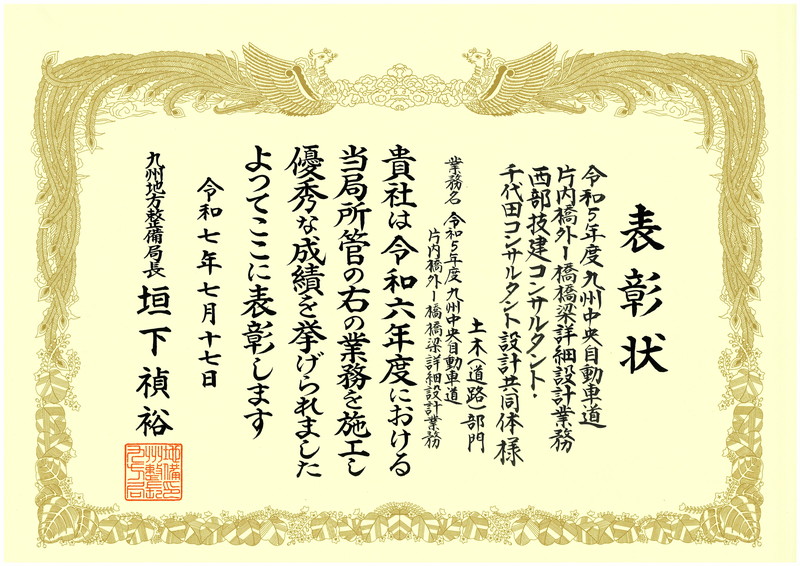 表彰状
令和5年度九州中央自動車道
片内橋外1橋橋梁詳細設計業務
西部技建コンサルタント・
千代田コンサルタント設計共同体様
土木(道路)部門
業務名 令和5年度九州中央自動車道
片内橋外1橋橋梁詳細設計業務
貴社は令和六年度における
当局所管の右の業務を施工し
優秀な成績を挙げられました
よってここに表彰します
令和七年七月十七日
九州地方整備局長 垣下禎裕